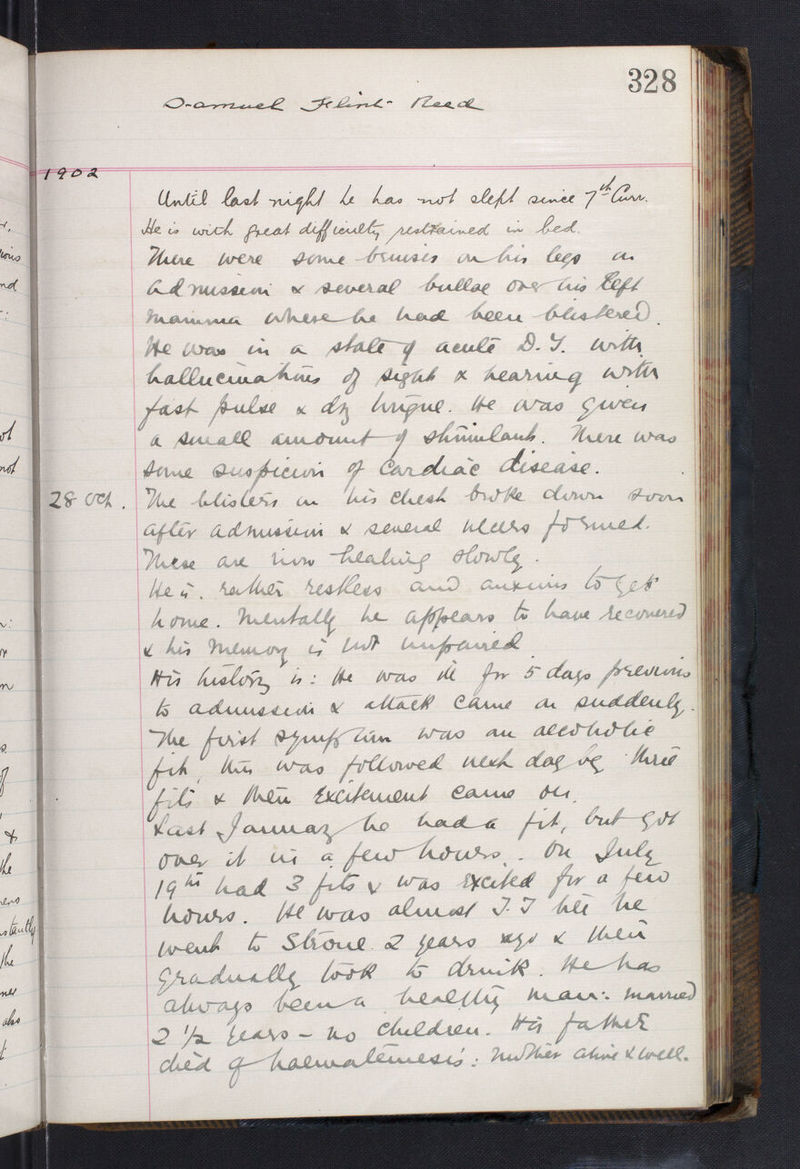 328
Samuel Flint Reed
1902
Until last night he has not slept since 7th Curr.
He is with great difficulty restrained in bed.
There were some bruises on his legs on
admission & several bullae over his left
mamma where he had been blistered.
He was in a state of acute D.T. with
hallucinations of sight & hearing with
fast pulse & dry tongue. He was given
a small amount of stimulants. There was
some suspicion of Cardiac disease.
28 Oct. The blisters on his chest broke down soon
after admission & several ulcers formed.
These are now healing slowly.
He is rather restless and anxious to get
home. Mentally he appears to have recovered
& his memory is not impaired
His history is: He was ill for 5 days previous
to admission & attack came on suddenly.
The first symptom was an alcoholic
fit, this was followed next day by three
fits & then Excitement came on.
Last January he had a fit, but got
over it in a few hours. On July
19th had 3 fits & was Excited for a few
hours. He was almost T.T till he
went to Strone 2 years ago & then
gradually took to drink. He has
always been a healthy man: married
2 1/2 years - no children. His father
died of haematemesis: Mother alive & well.